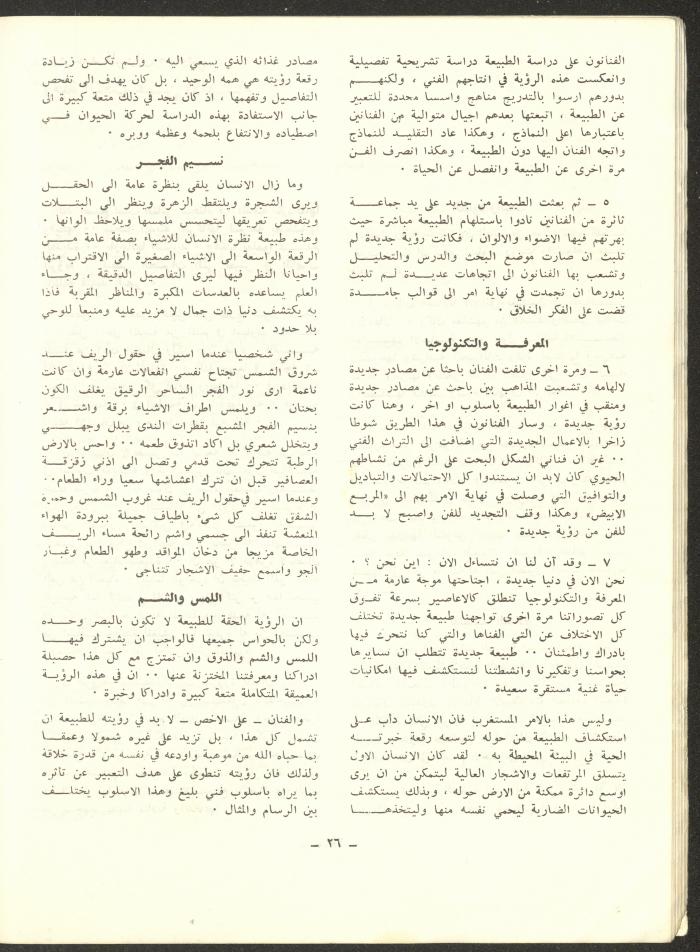 الفنانون على دراسة الطبيعة دراسة تشريحية تفصيلية
وانعكست هذه الرؤية في انتاجهم الفني ، ولكنهم
بدورهم ارسوا بالتدريج مناهج واسسا محددة للتعبير
عن الطبيعة ، اتبعتها بعدهم اجيال متوالية من الفنانين
باعتبارها اعلى النماذج ، وهكذا عاد التقليد للنماذج
واتجه الفنان اليها دون الطبيعة ، وهكذا انصرف الفن
مرة اخرى عن الطبيعة وانفصل عن الحياة ٠
٥ ـ ثم بعثت الطبيعة من جديد على يد جماعة
ثائرة من الفنانين نادوا باستلهام الطبيعة مباشرة حيث
بهرتهم فيها الاضواء والالوان ، فكانت رؤية جديدة لم
تلبث ان صارت موضع البحث والدرس والتحليل
وتشعب بها الفنانون الى اتجاهات عديدة لم تلبث
بدورها ان تجمدت في نهاية امر الى قوالب جامدة
قضت على الفكر الخلاق ٠
المعرفة والتكنولوجيا
٦ ـ ومرة اخرى تلفت الفنان باحثا عن مصادر جديدة
لالهامه وتشعبت المذاهب بين باحث عن مصادر جديدة
ومنقب في اغوار الطبيعة باسلوب او اخر ، وهنا كانت
رؤية جديدة ، وسار الفنانون في هذا الطريق شوطا
زاخرا بالاعمال الجديدة التي اضافت الى التراث الفني
٠٠ غير ان فناني الشكل البحت على الرغم من نشاطهم
الحيوي كان لابد ان يستندوا كل الاحتمالات والتباديل
والتوافيق التي وصلت في نهاية الامر بهم الى «المربع
الابيض» وهكذا وقف التجديد للفن واصبح لا بد
للفن من رؤية جديدة ٠
٧ ـ وقد آن لنا ان نتساءل الان : اين نحن ؟ ٠
نحن الان في دنيا جديدة ، اجتاحتها موجة عارمة من
المعرفة والتكنولوجيا تنطلق كالاعاصير بسرعة تفوق
كل تصوراتنا مرة اخرى تواجهنا طبيعة جديدة تختلف
كل الاختلاف عن التي الفناها والتي كنا نتحرك فيها
بادراك واطمئنان ٠٠ طبيعة جديدة تتطلب ان نسايرها
بحواسنا وتفكيرنا وانشطتنا لنستكشف فيها امكانيات
حياة غنية مستقرة سعيدة ٠
وليس هذا بالامر المستغرب فان الانسان دأب على
استكشاف الطبيعة من حوله لتوسعه رقعة خبرته
الحية في البيئة المحيطة به ٠ لقد كان الانسان الاول
يتسلق المرتفعات والاشجار العالية ليتمكن من ان يرى
اوسع دائرة ممكنة من الارض حوله ، وبذلك يستكشف
الحيوانات الضارية ليحمي نفسه منها وليتخذها
مصادر غذائه الذي يسعى اليه ٠ ولم تكن زيادة
رقعة رؤيته هي همه الوحيد ، بل كان يهدف الى تفحص
التفاصيل وتفهمها ، اذ كان يجد في ذلك متعة كبيرة الى
جانب الاستفادة بهذه الدراسة لحركة الحيوان في
اصطياده والانتفاع بلحمه وعظمه ووبره ٠
نسيم الفجر
وما زال الانسان يلقى بنظرة عامة الى الحقل
ويرى الشجرة ويلتقط الزهرة وينظر الى البتلات
ويتفحص تعريقها ليتحسس ملمسها ويلاحظ الوانها ٠
وهذه طبيعة نظرة الانسان للاشياء بصفة عامة من
الرقعة الواسعة الى الاشياء الصغيرة الى الاقتراب منها
واحيانا النظر فيها ليرى التفاصيل الدقيقة ، وجاء
العلم يساعده بالعدسات المكبرة والمناظر المقربة فاذا
به يكتشف دنيا ذات جمال لا مزيد عليه ومنبعا للوحي
بلا حدود ٠
واني شخصيا عندما اسير في حقول الريف عند
شروق الشمس تجتاح نفسي انفعالات عارمة وان كانت
ناعمة ارى نور الفجر الساحر الرقيق يغلف الكون
بحنان ٠٠ ويلمس اطراف الاشياء برقة واشعر
بنسيم الفجر المشبع بقطرات الندى يبلل وجهي
ويتخلل شعري بل اكاد اتذوق طعمه ٠٠ واحس بالارض
الرطبة تتحرك تحت قدمي وتصل الى اذني زقزقة
العصافير قبل ان تترك اعشاشها سعيا وراء الطعام٠٠
وعندما اسير في حقول الريف عند غروب الشمس وحمرة
الشفق تغلف كل شىء باطياف جميلة ببرودة الهواء
المنعشة تنفذ الى جسمي واشم رائحة مساء الريف
الخاصة مزيجا من دخان المواقد وطهو الطعام وغبار
الجو واسمع حفيف الاشجار تتناجى ٠
اللمس والشم
ان الرؤية الحقة للطبيعة لا تكون بالبصر وحده
ولكن بالحواس جميعها فالواجب ان يشترك فيها
اللمس والشم والذوق وان تمتزج مع كل هذا حصيلة
ادراكنا ومعرفتنا المختزنة عنها ٠٠ ان في هذه الرؤية
العميقة المتكاملة متعة كبيرة وادراكا وخبرة ٠
والفنان ـ على الاخص ـ لا بد في رؤيته للطبيعة ان
تشمل كل هذا ، بل تزيد على غيره شمولا وعمقا
بما حباه الله من موهبة واودعه في نفسه من قدرة خلاقة
ولذلك فان رؤيته تنطوى على هدف التعبير عن تأثره
بما يراه باسلوب فني بليغ وهذا الاسلوب يختلف
بين الرسام والمثال ٠
ـ ٢٦ ـ